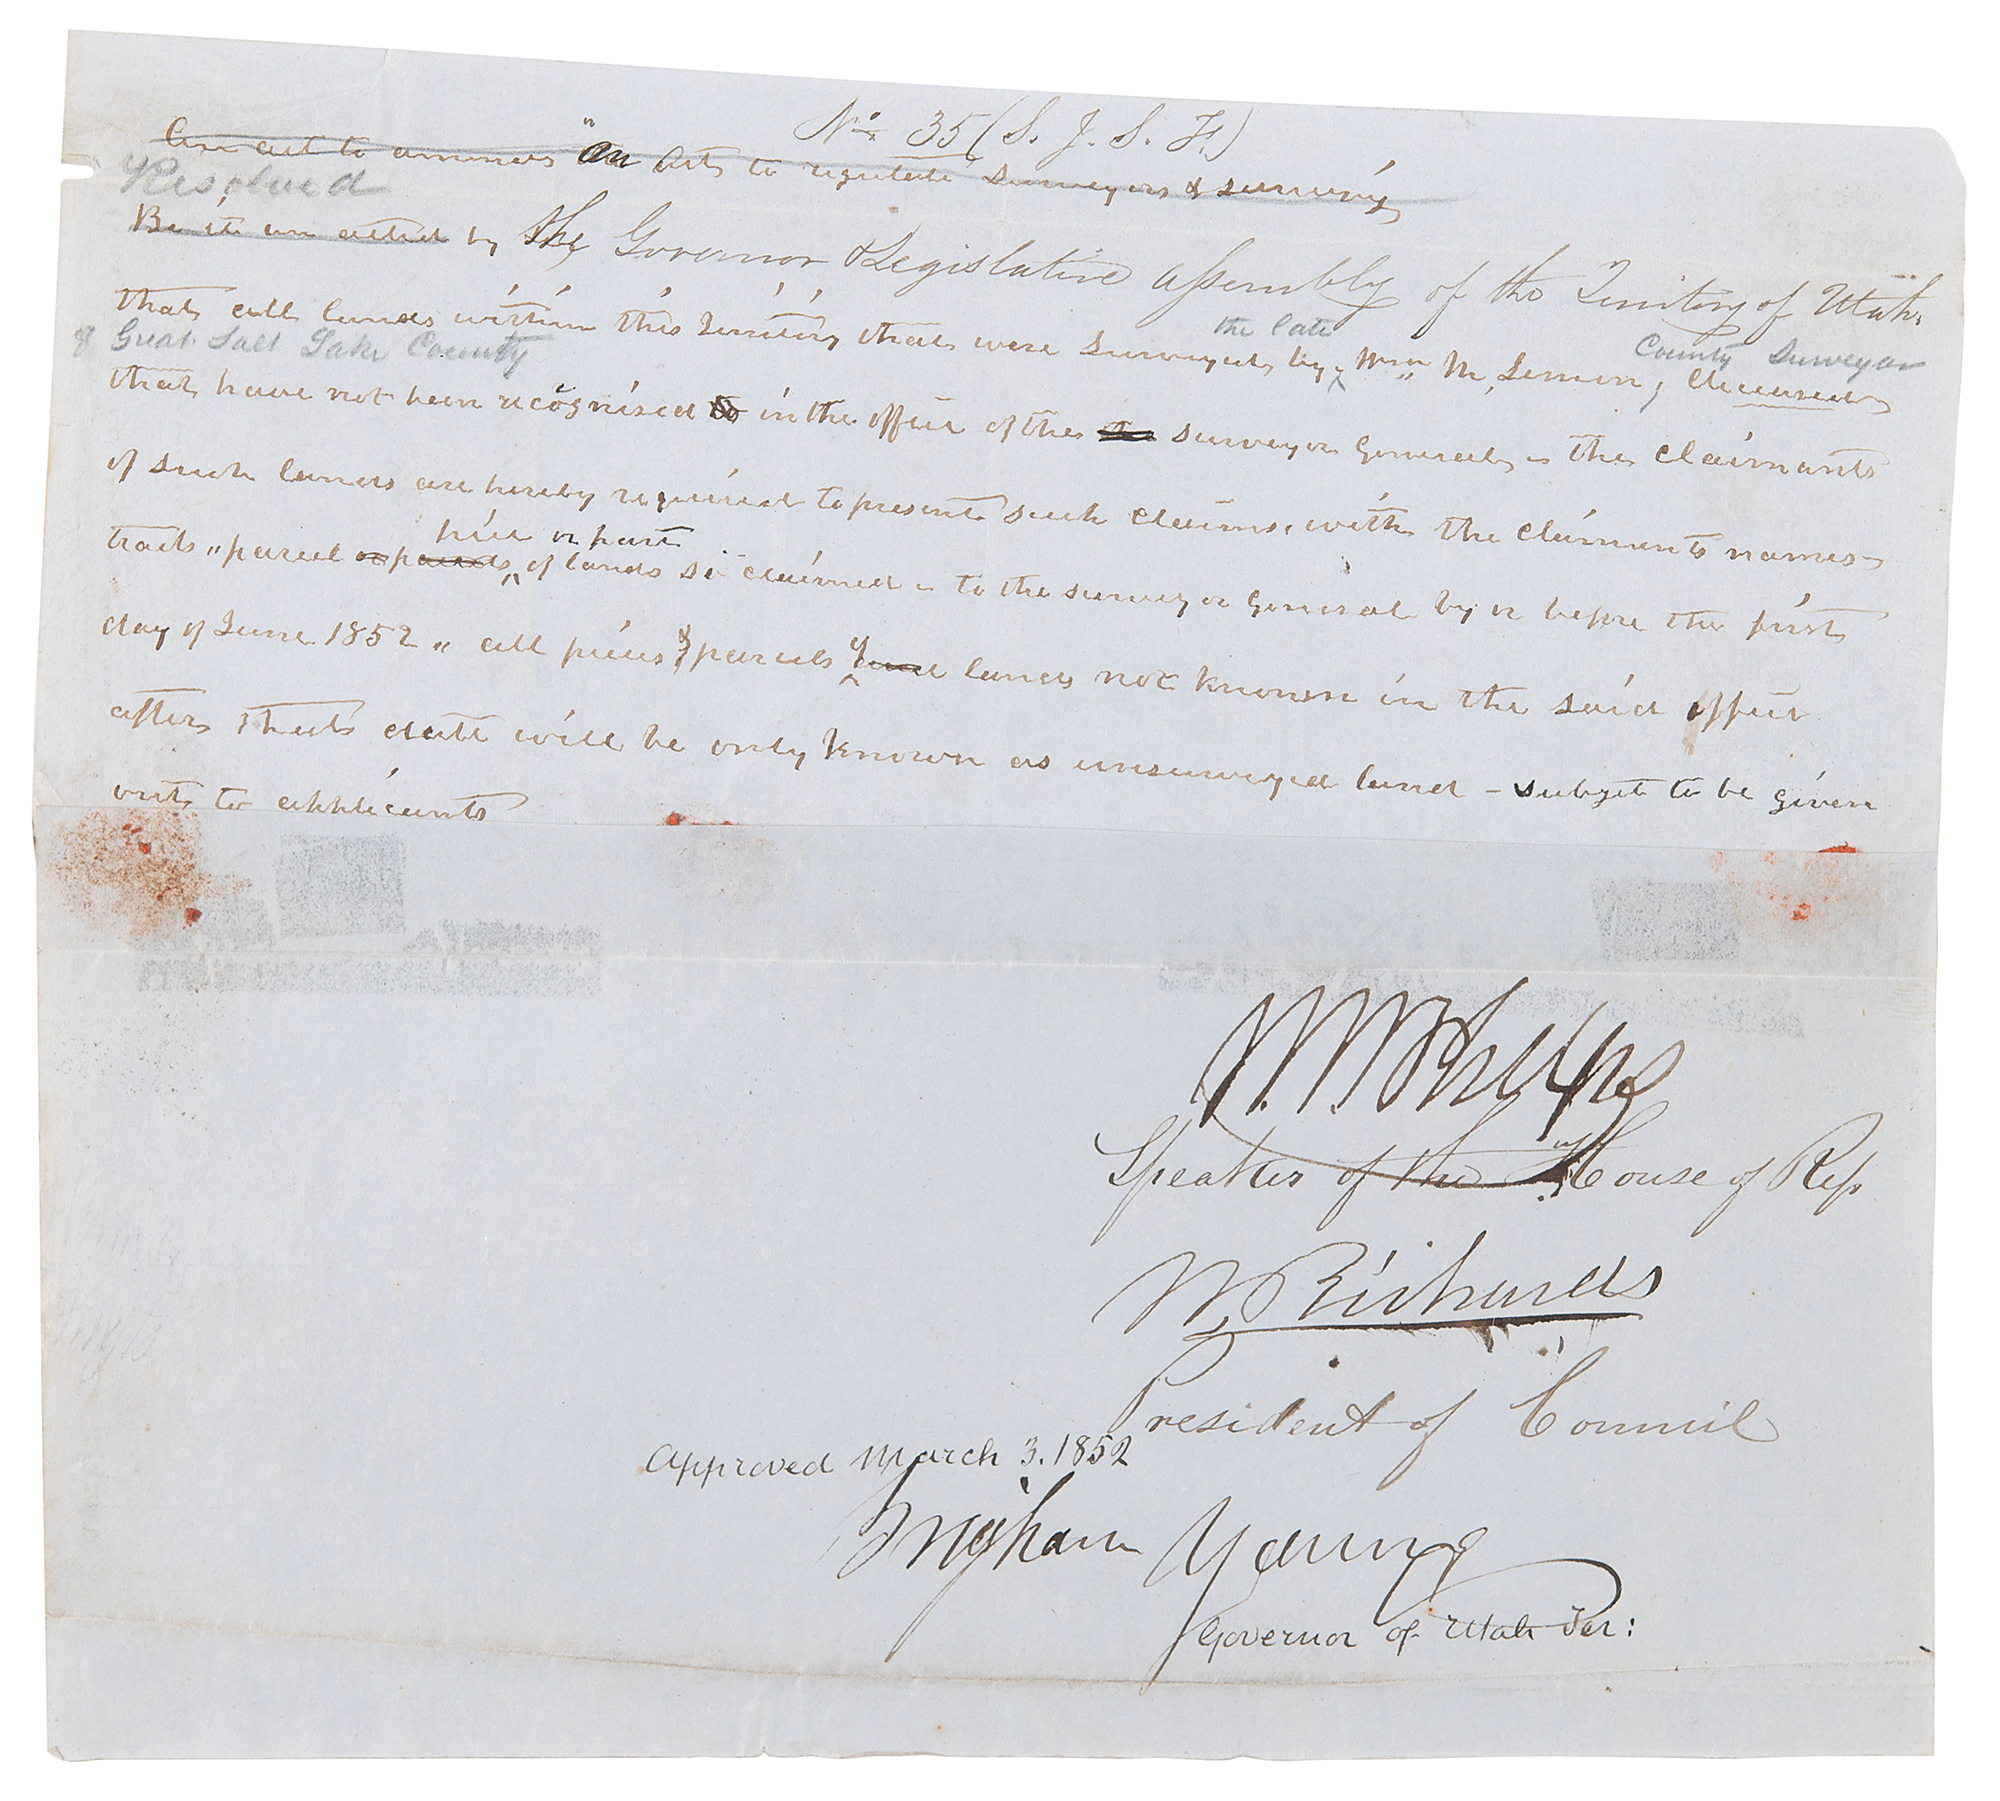 No. 35 (S. J. S. H.)
An act to ammend "An Act to regulate Surveyors & surveying
Resolved
Be it en acted by the Governor & Legislative assembly of the Territory of Utah,
that all lands within this Territory that were Surveyed by the late Wm M, Lemon, deceased County Surveyor
of Great Salt Lake County
that have not been recognised to in the office of the surveyor General, the claimants
of such lands are hereby required to present such claims, with the claimants names
tracts, parcel or parcels, piece or part of lands so claimed to the surveyor General by or before the first
day of June 1852 " all pieces & parcels of land lands not known in the said office
after that date will be only known as unsurveyed land - subject to be given
out to applicants
W. W. Phelps
Speaker of the House of Reps
W. Richards
President of Council
Approved March 3. 1852
Brigham Young
Governor of Utah Ter: